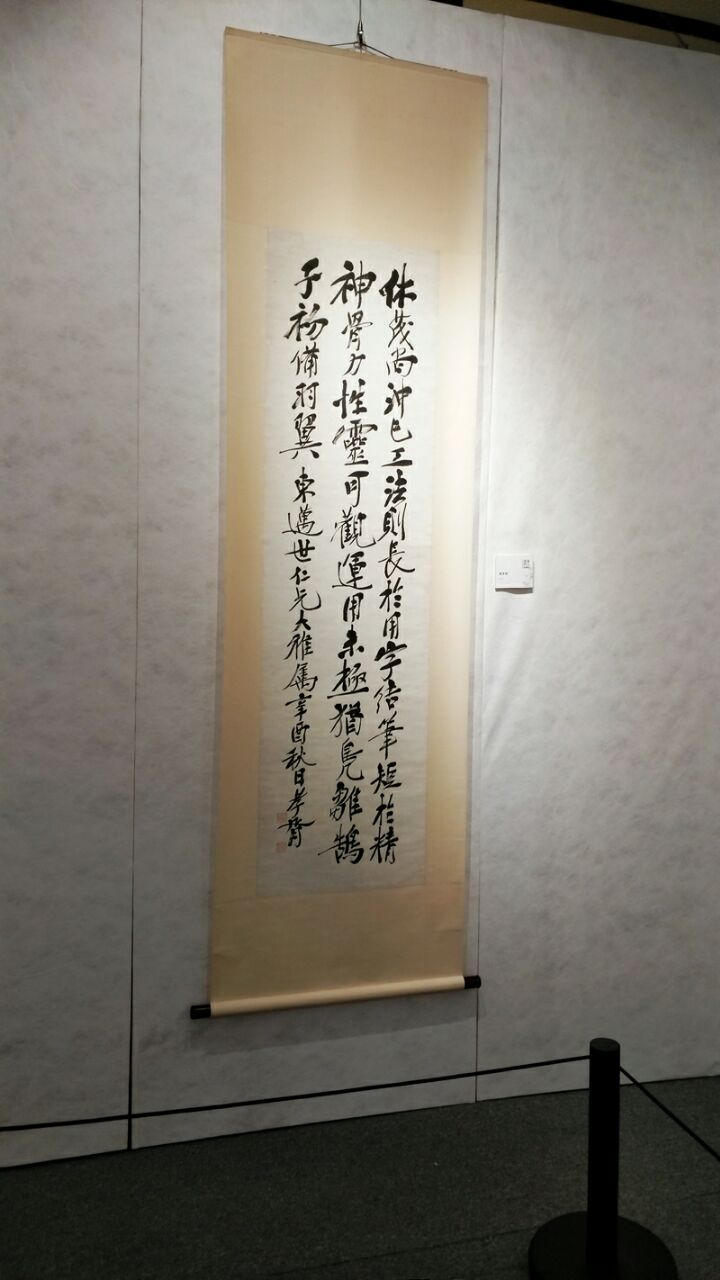 休茂尚冲已工法則長於用字結筆短於精
神骨力性靈可觀運用未極猶鳧雛鵠
子初備羽翼 東邁世仁兄大雅屬 辛酉秋日 孝胥